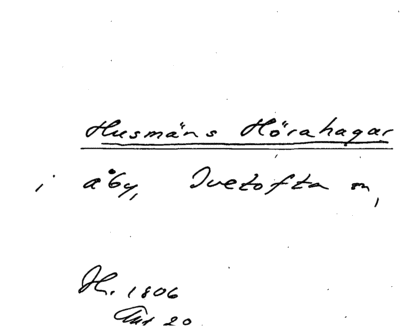 Husmäns Hörahagar
i åby, Ivetofta sn,
Hr. 1806
Aug 20.